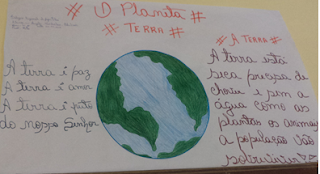 # O Planeta #
# TERRA #
A terra é paz
A terra é amor
A terra é feito
do nosso Senhor
# A TERRA #
A terra está
seca precisa de
chover e sem a
água como as
plantas os animais
a população vão
sobreviver